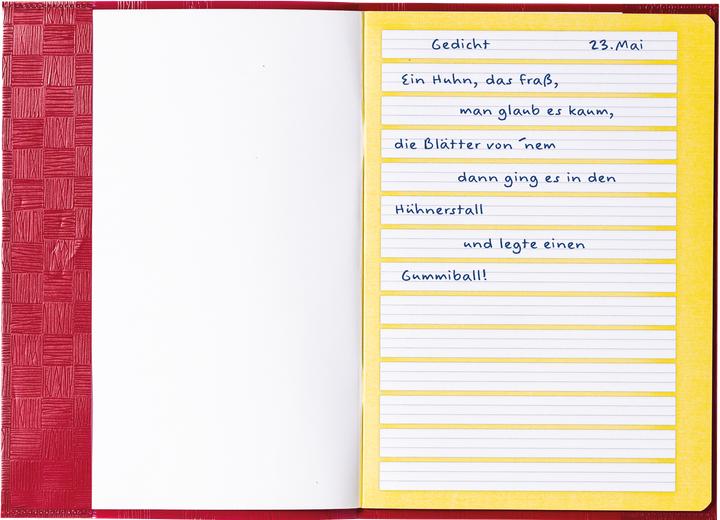 Gedicht 23. Mai
Ein Huhn, das fraß,
man glaub es kaum,
die Blätter von ´nem
dann ging es in den
Hühnerstall
und legte einen
Gummiball!